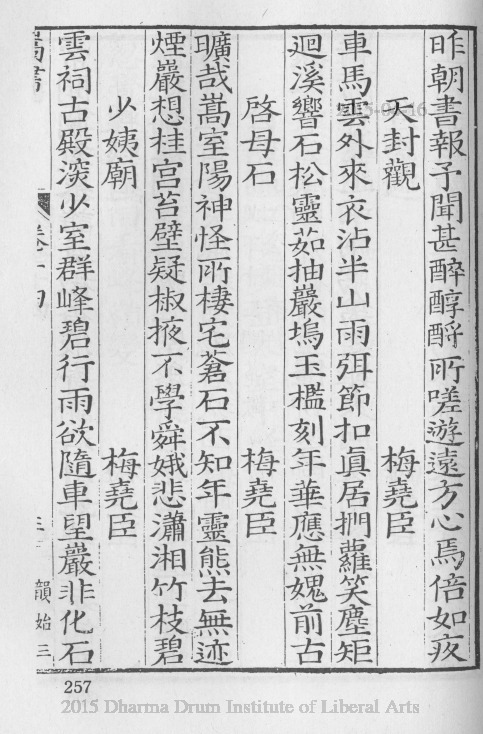 昨朝書報予聞甚醉醇酹所嗟遊遠方心焉倍如疚
天封觀 梅堯臣
車馬雲外來衣沾半山雨弭節扣真居捫蘿笑塵矩
迴溪響石松靈茹抽巖塢玉檻刻年華應無媿前古
啓母石 梅堯臣
曠哉嵩室陽神怪所棲宅蒼石不知年靈熊去無迹
煙巖想桂宮苔壁疑椒掖不學舜娥悲瀟湘竹枝碧
少姨廟 梅堯臣
雲祠古殿深少室群峰碧行雨欲隨車望巖非化石
嵩書
卷十四
韻始三
257
2015 Dharma Drum Institute of Liberal Arts